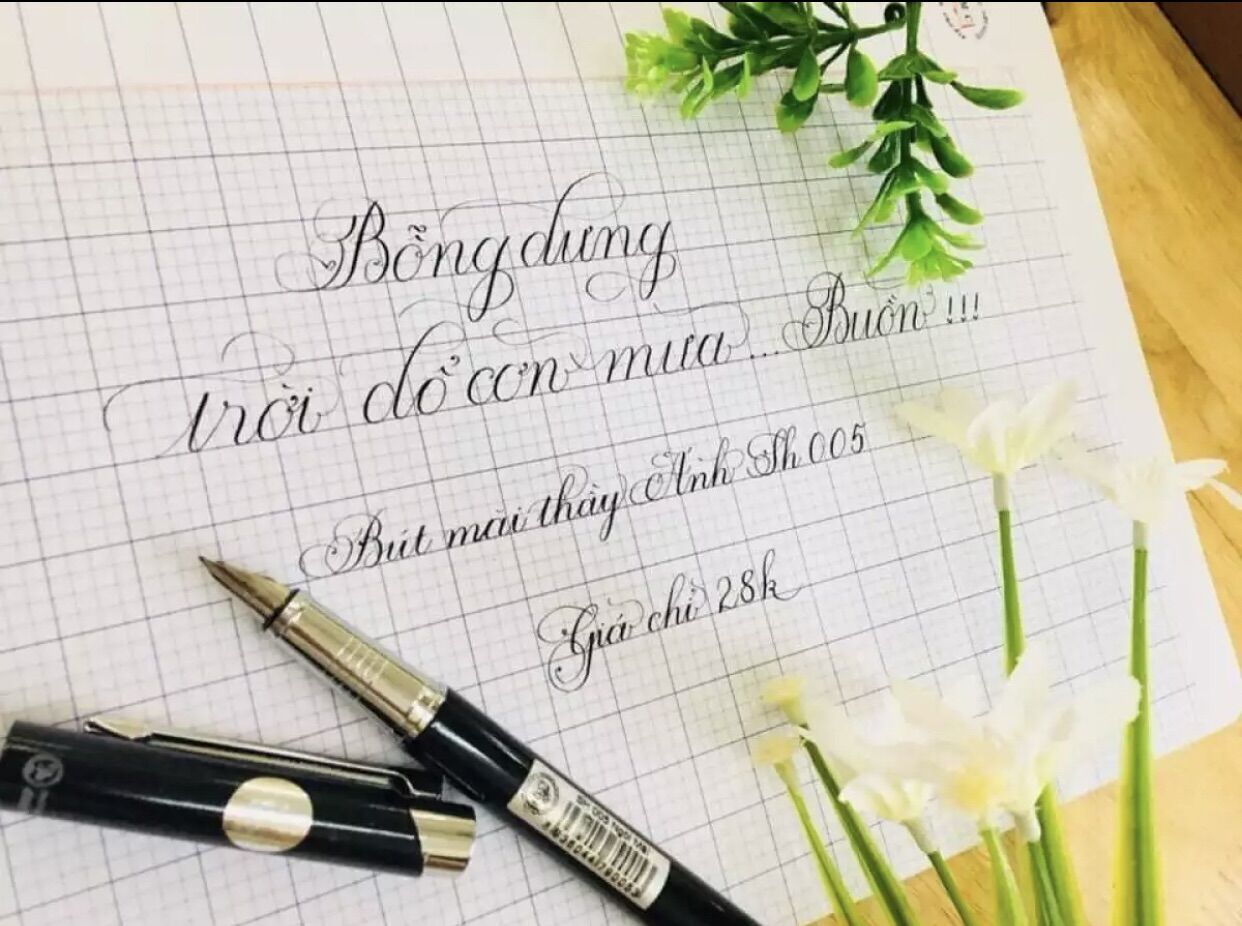 Bỗng dưng
trời đổ cơn mưa... Buồn!!!
Bút mài thầy Ánh SH 005
Giá chỉ 28k